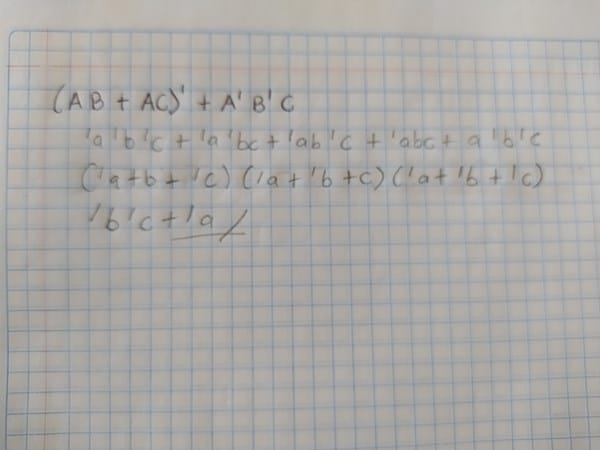 (AB + AC)' + A'B'C
'a'b'c + 'a'bc + 'ab'c + 'abc + a'b'c
('a+b+'c)('a+'b+c)('a+'b+'c)
'b'c+'a/